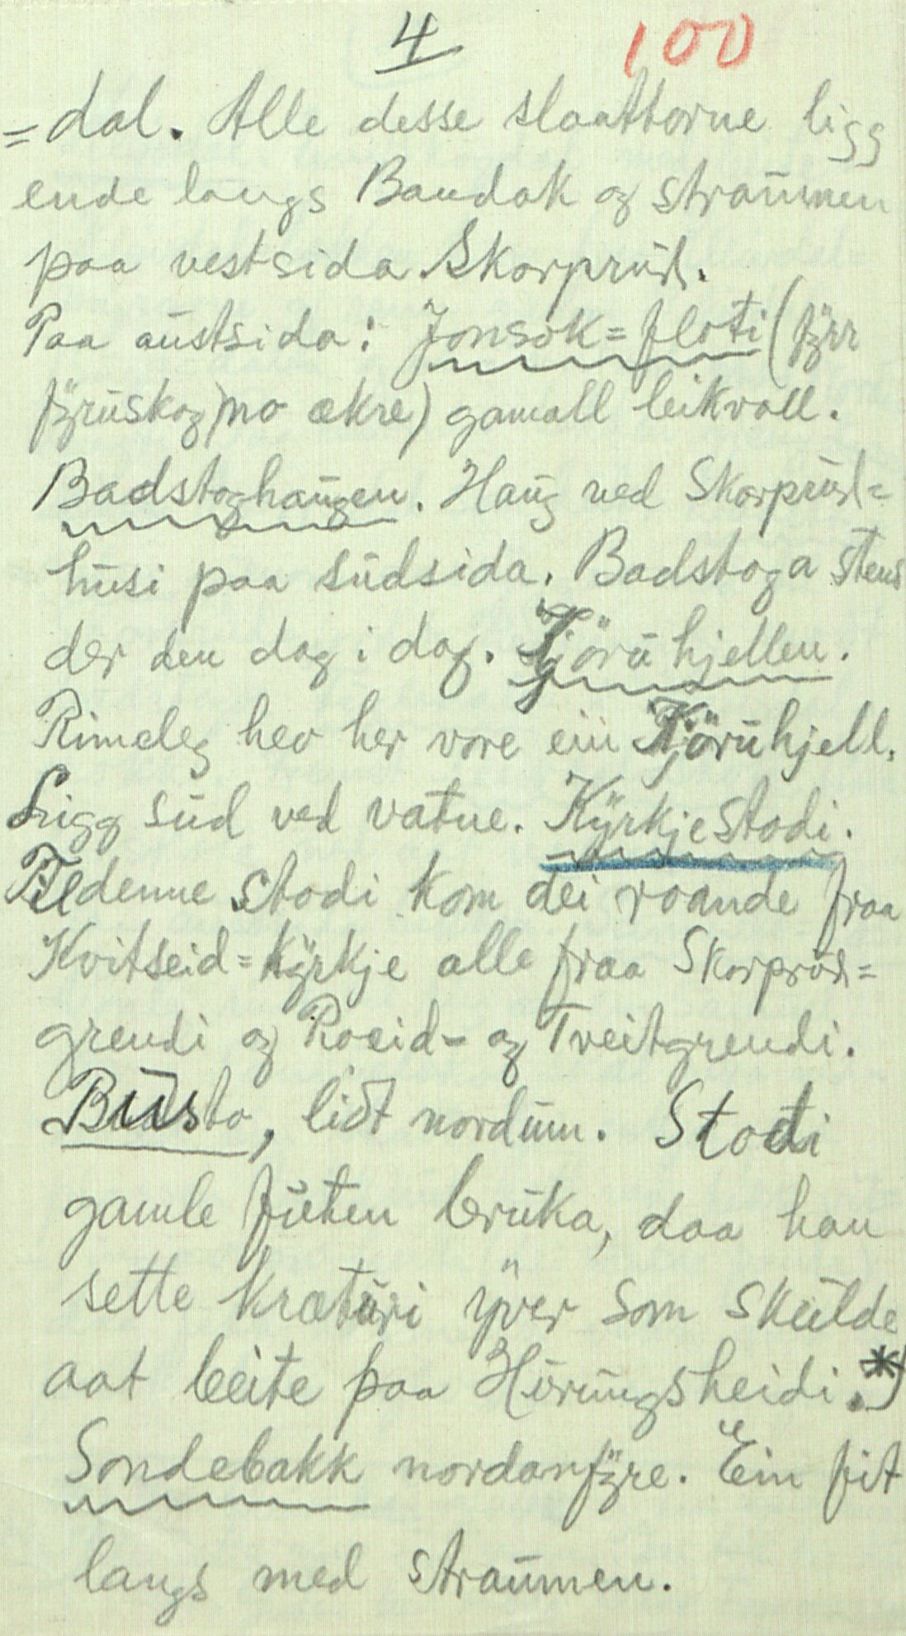 4 100
=dal. Alle desse slaattorne ligg
ende langs Bandak og straumen
paa vestsida Skorprud.
Paa austsida: Jonsok=floti (fyrr
fyruskog) no ækre) gamall leikvoll.
Badstoghaugen. Haug ved Skorprud=
husi paa sudsida. Badstoga stend
der den dag i dag. Kjöruhjellen.
Rimeleg hev her vore ein Kjöruhjell.
Ligg sud ved vatne. Kyrkjestodi.
Til denne stodi kom dei roande fraa
Kvitseid=kyrkje alle fraa Skorprud=
grendi og Roeid- og Tveitgrendi.
Busto, lidt nordum. Stodi
gamle futen bruka, daa han
sette kræturi yver som skulde
aat beite paa Hörungsheidi.*)
Sondebakk nordanfyre. Ein fit
langs med straumen.